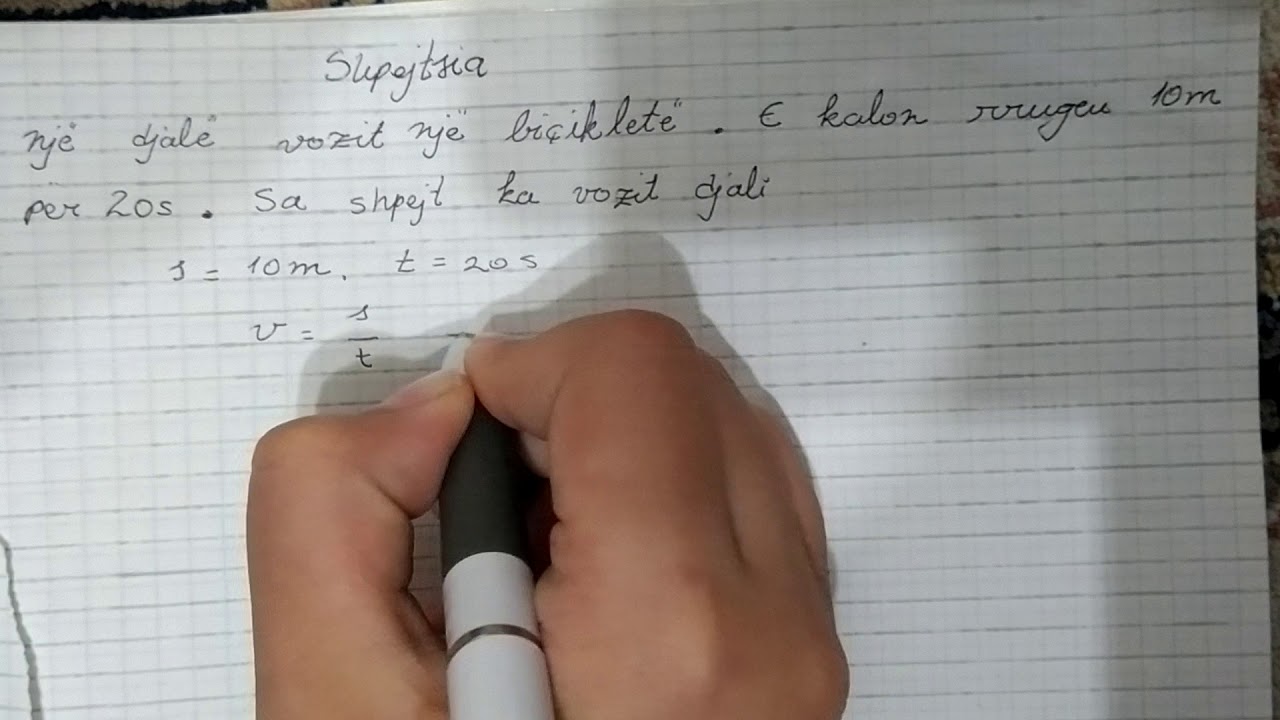 Shpejtsia
një djalë vozit një biçikletë. E kalon rrugen 10m
për 20s. Sa shpejt ka vozit djali
s = 10m. t = 20s
v = s/t